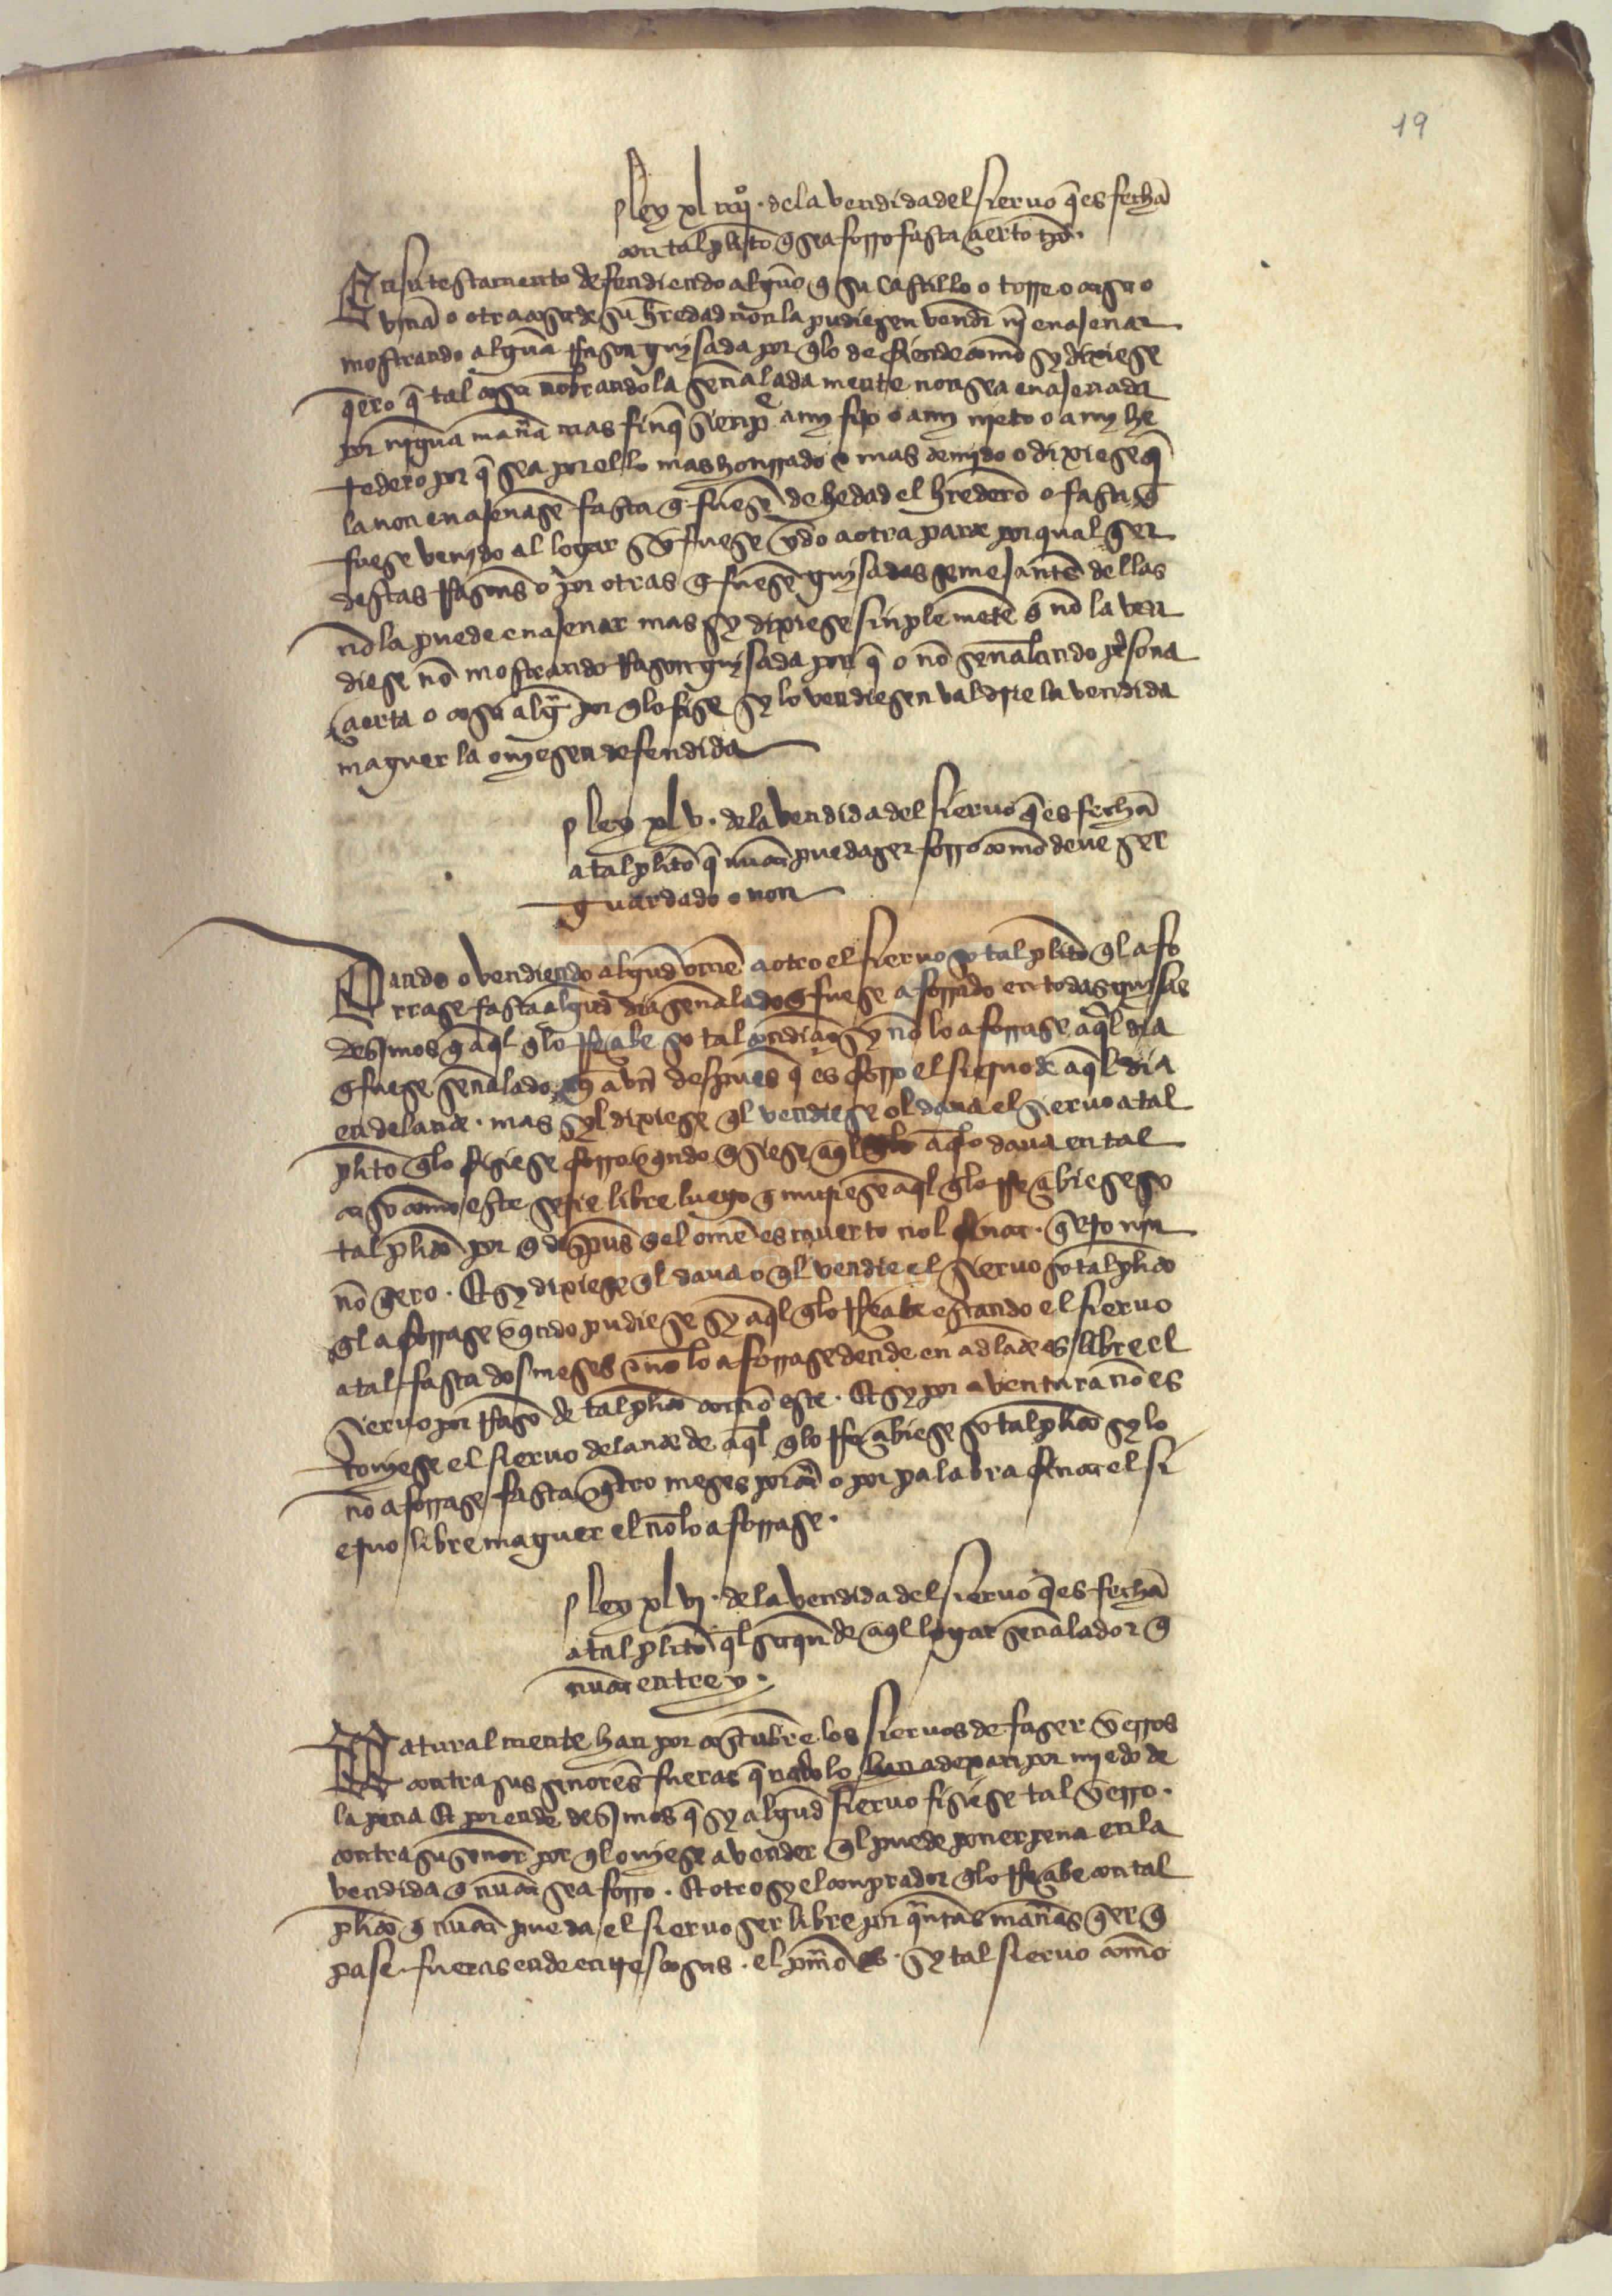 19
ley xl iiijº. dela vendida del sieruo q̄ es fechā
con tal plito q̄ sea forro fasta çierto tp̄o.
En su testamento defendiendo algūo q̄ su castillo o torre o casa o
viña o otra cosa de su h̄redad non la pudiesen vendr̄ nj̄ enajenar
mostrando algūa rrason guisada por q̄lo defiende com̄o sy dixiese
q̄ero q̄ tal cosa nōbrando la señalada mente non sea enajenada
por njguna man̄a mas finq̄ sienpr̄ a my fijo o a my njeto o a my he
redero por q̄ sea por ello mas honrrado e mas temjdo o dixiese q̄
la non enajenasē fasta q̄ fuesē de hedad el h̄redero o fasta q̄
fuese venjdo al logar sy fuese ydo a otra parte por qual q̄er
destas rrasons o por otras q̄ fuesē guisadas semejantes dellas
nō la puede enajenar mas sy dixiese sinple metē q̄ nō la ven
diese nō mostrando rrason guisada por q̄ o nō señalando p̄sona
çierta o cosa alḡ por q̄lo fase sy lo vendiesen valdrie la vendida
maguer la oujesen defendida
ley xl v. dela vendida del sieruo q̄ es fechā
a tal plito q̄ nūca pueda ser forro com̄o deue ser
guardado o non
Dando o vendiendo algūd om̄e a otro el sieruo so tal plito q̄l afo
rrase fasta algūd dia señalado q̄ fuese aforrado en todas guisas
desimos q̄ aq̄l q̄lo rreçibe so tal condiçiō sy nō lo aforrase aq̄l dia
q̄ fuese señalado q̄ avn̄ despues q̄ es forro el sieruo de aq̄l dia
en delante. mas syl dixiese q̄l vendiese ol daua el sieruo a tal
plito q̄lo fisiese forro q̄ndo q̄siese aq̄l aq̄lo daua en tal
caso com̄o este serie libre luego q̄ muriesē aq̄l q̄lo rreçibiese so
tal plito por q̄ despus q̄ el om̄e es muerto nol finca q̄rer nin
nō q̄ero. Et sy dixiese q̄l daua o q̄l vendie el sieruo so tal plito
q̄l aforrase q̄ndo pudiese sy aq̄l q̄lo rreçibe estando el sieruo
a tal fasta dos meses e nō lo aforrase dende en adlāte es libre el
sieruo por rraso de tal plito com̄o este. Et sy por aventura nō es
toujese el sieruo delante de aq̄l q̄lo rreçibiese so tal plito sy lo
nō aforrase fasta q̄tro meses por cā o por palabra finca el si
eruo libre maguer el nō lo aforrase.
ley xl vj. dela vendida del sieruo q̄ es fechā
a tal plito q̄l saquē de aq̄l logar señalado z q̄
nūca entre y.
Naturalmente han por costunbre los sieruos de faser yerros
contra sus señores fueras q̄ndo lo han a dexar por mjedo de
la pena Et por ende desimos q̄ sy algūd sieruo fisiese tal yerro.
contra su señor por q̄l oujese a vender q̄l puede poner pena en la
vendida q̄ nūca sea forro. Et otrosy el conprador q̄lo rreçibe con tal
plito q̄ nūca pueda el sieruo ser libre por q̄ntas man̄as q̄er q̄
pase fueras ende en tres cosas. el pm̄o es. sy tal sieruo com̄o